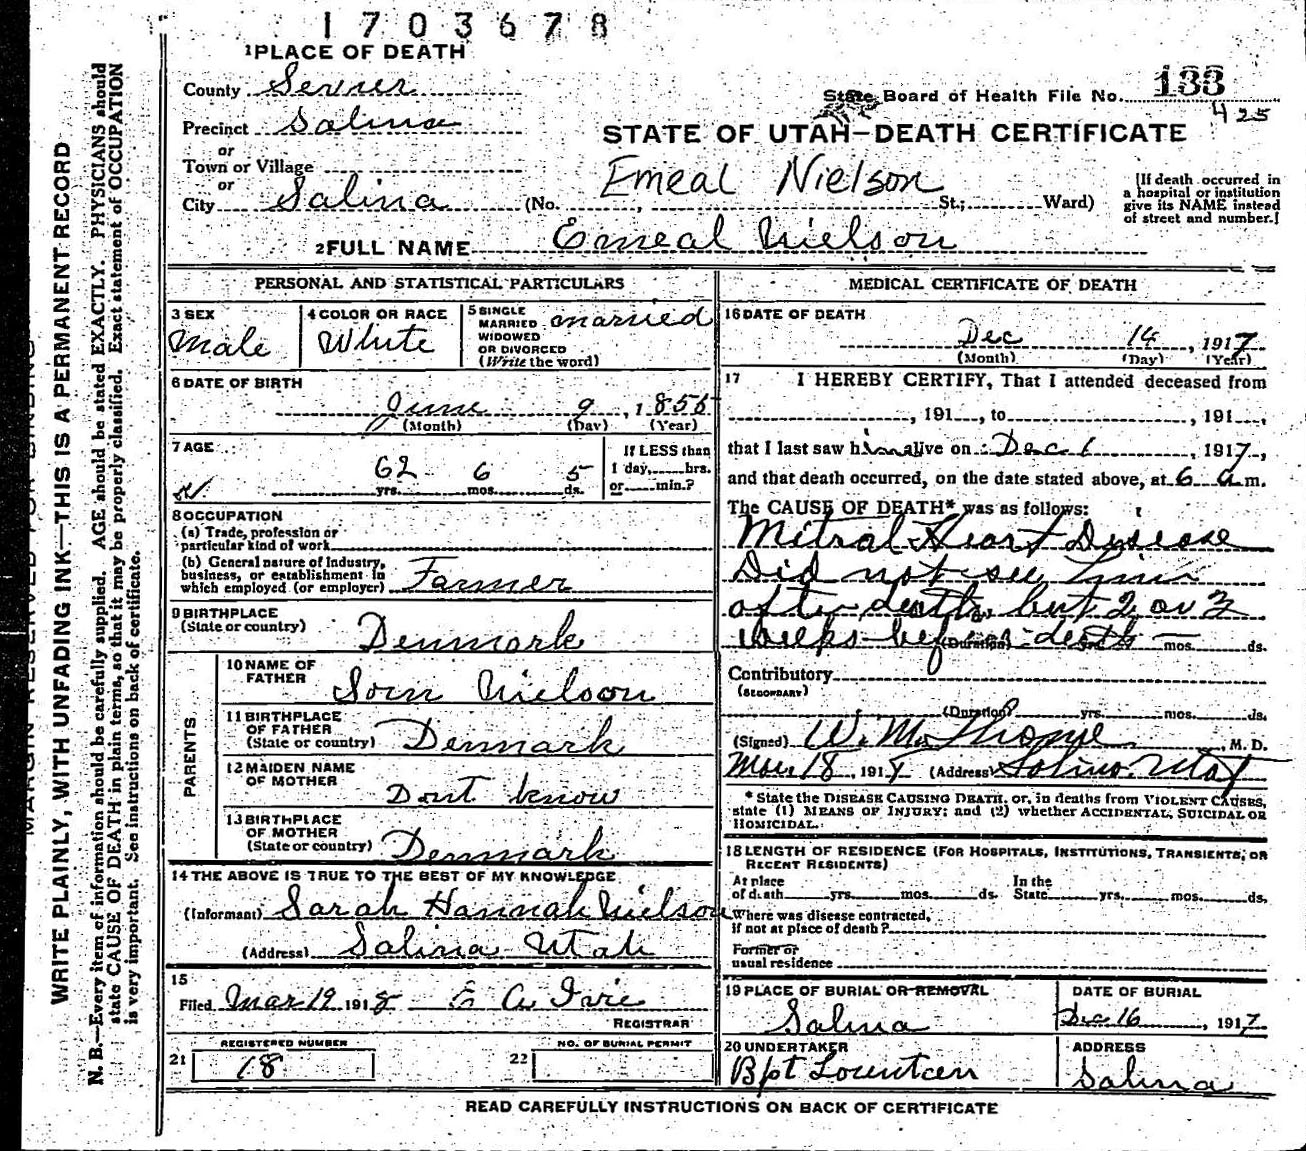 1703678
1 PLACE OF DEATH
County Sevier
State Board of Health File No. 133
425
Precinct Salina
STATE OF UTAH—DEATH CERTIFICATE
or
Town or Village
or
Emeal Nielson
City Salina (No. , St.; Ward)
[If death occurred in
a hospital or institution
give its NAME instead
of street and number.]
2 FULL NAME Emeal Nielson
PERSONAL AND STATISTICAL PARTICULARS
3 SEX
Male
4 COLOR OR RACE
White
5 SINGLE
MARRIED
WIDOWED
OR DIVORCED
(Write the word)
married
6 DATE OF BIRTH
June 9, 1855
(Month) (Day) (Year)
7 AGE
62 yrs. 6 mos. 5 ds.
If LESS than
1 day, hrs.
or min.?
8 OCCUPATION
(a) Trade, profession or
particular kind of work
(b) General nature of Industry,
business, or establishment in
which employed (or employer) Farmer
9 BIRTHPLACE
(State or country) Denmark
PARENTS
10 NAME OF
FATHER Sorn Nielson
11 BIRTHPLACE
OF FATHER
(State or country) Denmark
12 MAIDEN NAME
OF MOTHER Dont know
13 BIRTHPLACE
OF MOTHER
(State or country) Denmark
14 THE ABOVE IS TRUE TO THE BEST OF MY KNOWLEDGE
(Informant) Sarah Hannah Nielson
(Address) Salina Utah
15
Filed Mar 19 1918 E A Ivie
REGISTRAR
21 REGISTERED NUMBER
18
22 NO. OF BURIAL PERMIT
MEDICAL CERTIFICATE OF DEATH
16 DATE OF DEATH
Dec 14, 1917
(Month) (Day) (Year)
17 I HEREBY CERTIFY, That I attended deceased from
, 191 , to , 191 ,
that I last saw him alive on Dec 1, 1917,
and that death occurred, on the date stated above, at 6 a m.
The CAUSE OF DEATH* was as follows:
Mitral Heart Disease
Did not see him
after death, but 2 or 3
weeks before death
(Duration) yrs. mos. ds.
Contributory
(SECONDARY)
(Duration) yrs. mos. ds.
(Signed) W. M. , M. D.
Mar 18, 191 (Address) Salina Utah
* State the DISEASE CAUSING DEATH, or, in deaths from VIOLENT CAUSES,
state (1) MEANS OF INJURY; and (2) whether ACCIDENTAL, SUICIDAL OR
HOMICIDAL.
18 LENGTH OF RESIDENCE (FOR HOSPITALS, INSTITUTIONS, TRANSIENTS, OR
RECENT RESIDENTS)
At place
of death yrs. mos. ds.
In the
State yrs. mos. ds.
Where was disease contracted,
if not at place of death?
Former or
usual residence
19 PLACE OF BURIAL OR REMOVAL
Salina
DATE OF BURIAL
Dec 16, 1917
20 UNDERTAKER
ADDRESS
Salina
READ CAREFULLY INSTRUCTIONS ON BACK OF CERTIFICATE
WRITE PLAINLY, WITH UNFADING INK—THIS IS A PERMANENT RECORD
N. B.—Every item of information should be carefully supplied. AGE should be stated EXACTLY. PHYSICIANS should
state CAUSE OF DEATH in plain terms, so that it may be properly classified. Exact statement of OCCUPATION
is very important. See instructions on back of certificate.